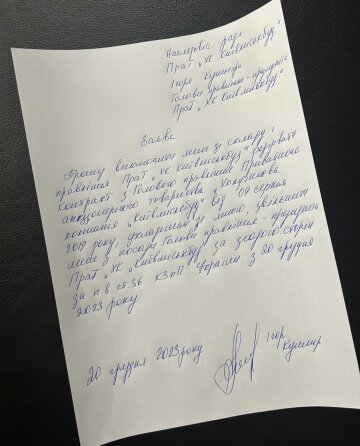 Наглядовій раді
ПрАТ „ХК Київміськбуд"
Ігоря Кушніра
Голови правління-президента
ПрАТ „ХК Київміськбуд"
Заява
Прошу виключити мене зі складу
правління ПрАТ „ХК Київміськбуд", розірвати
контракт з Головою правління Приватного
акціонерного товариства „Холдингова
компанія „Київміськбуд" від 09 серпня
2019 року, укладений зі мною, звільнити
мене з посади Голови правління - президента
ПрАТ „ХК „Київміськбуд" за згодою сторін
за п.8 ст.36 КЗпП України з 20 грудня
2023 року
20 грудня 2023 року
Ігор
Кушнір